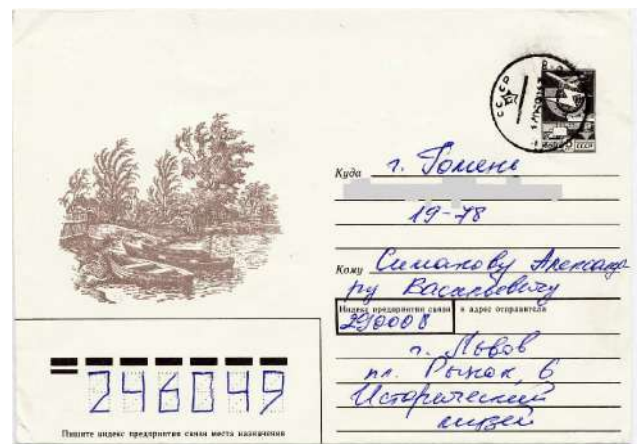 СССР
СССР
Куда г. Гомель
19-78
Кому Симакову Александ-
ру Васильевичу
Индекс предприятия связи и адрес отправителя
290008
г. Львов
пл. Рынок, 6
Исторический
музей
246049
Пишите индекс предприятия связи места назначения